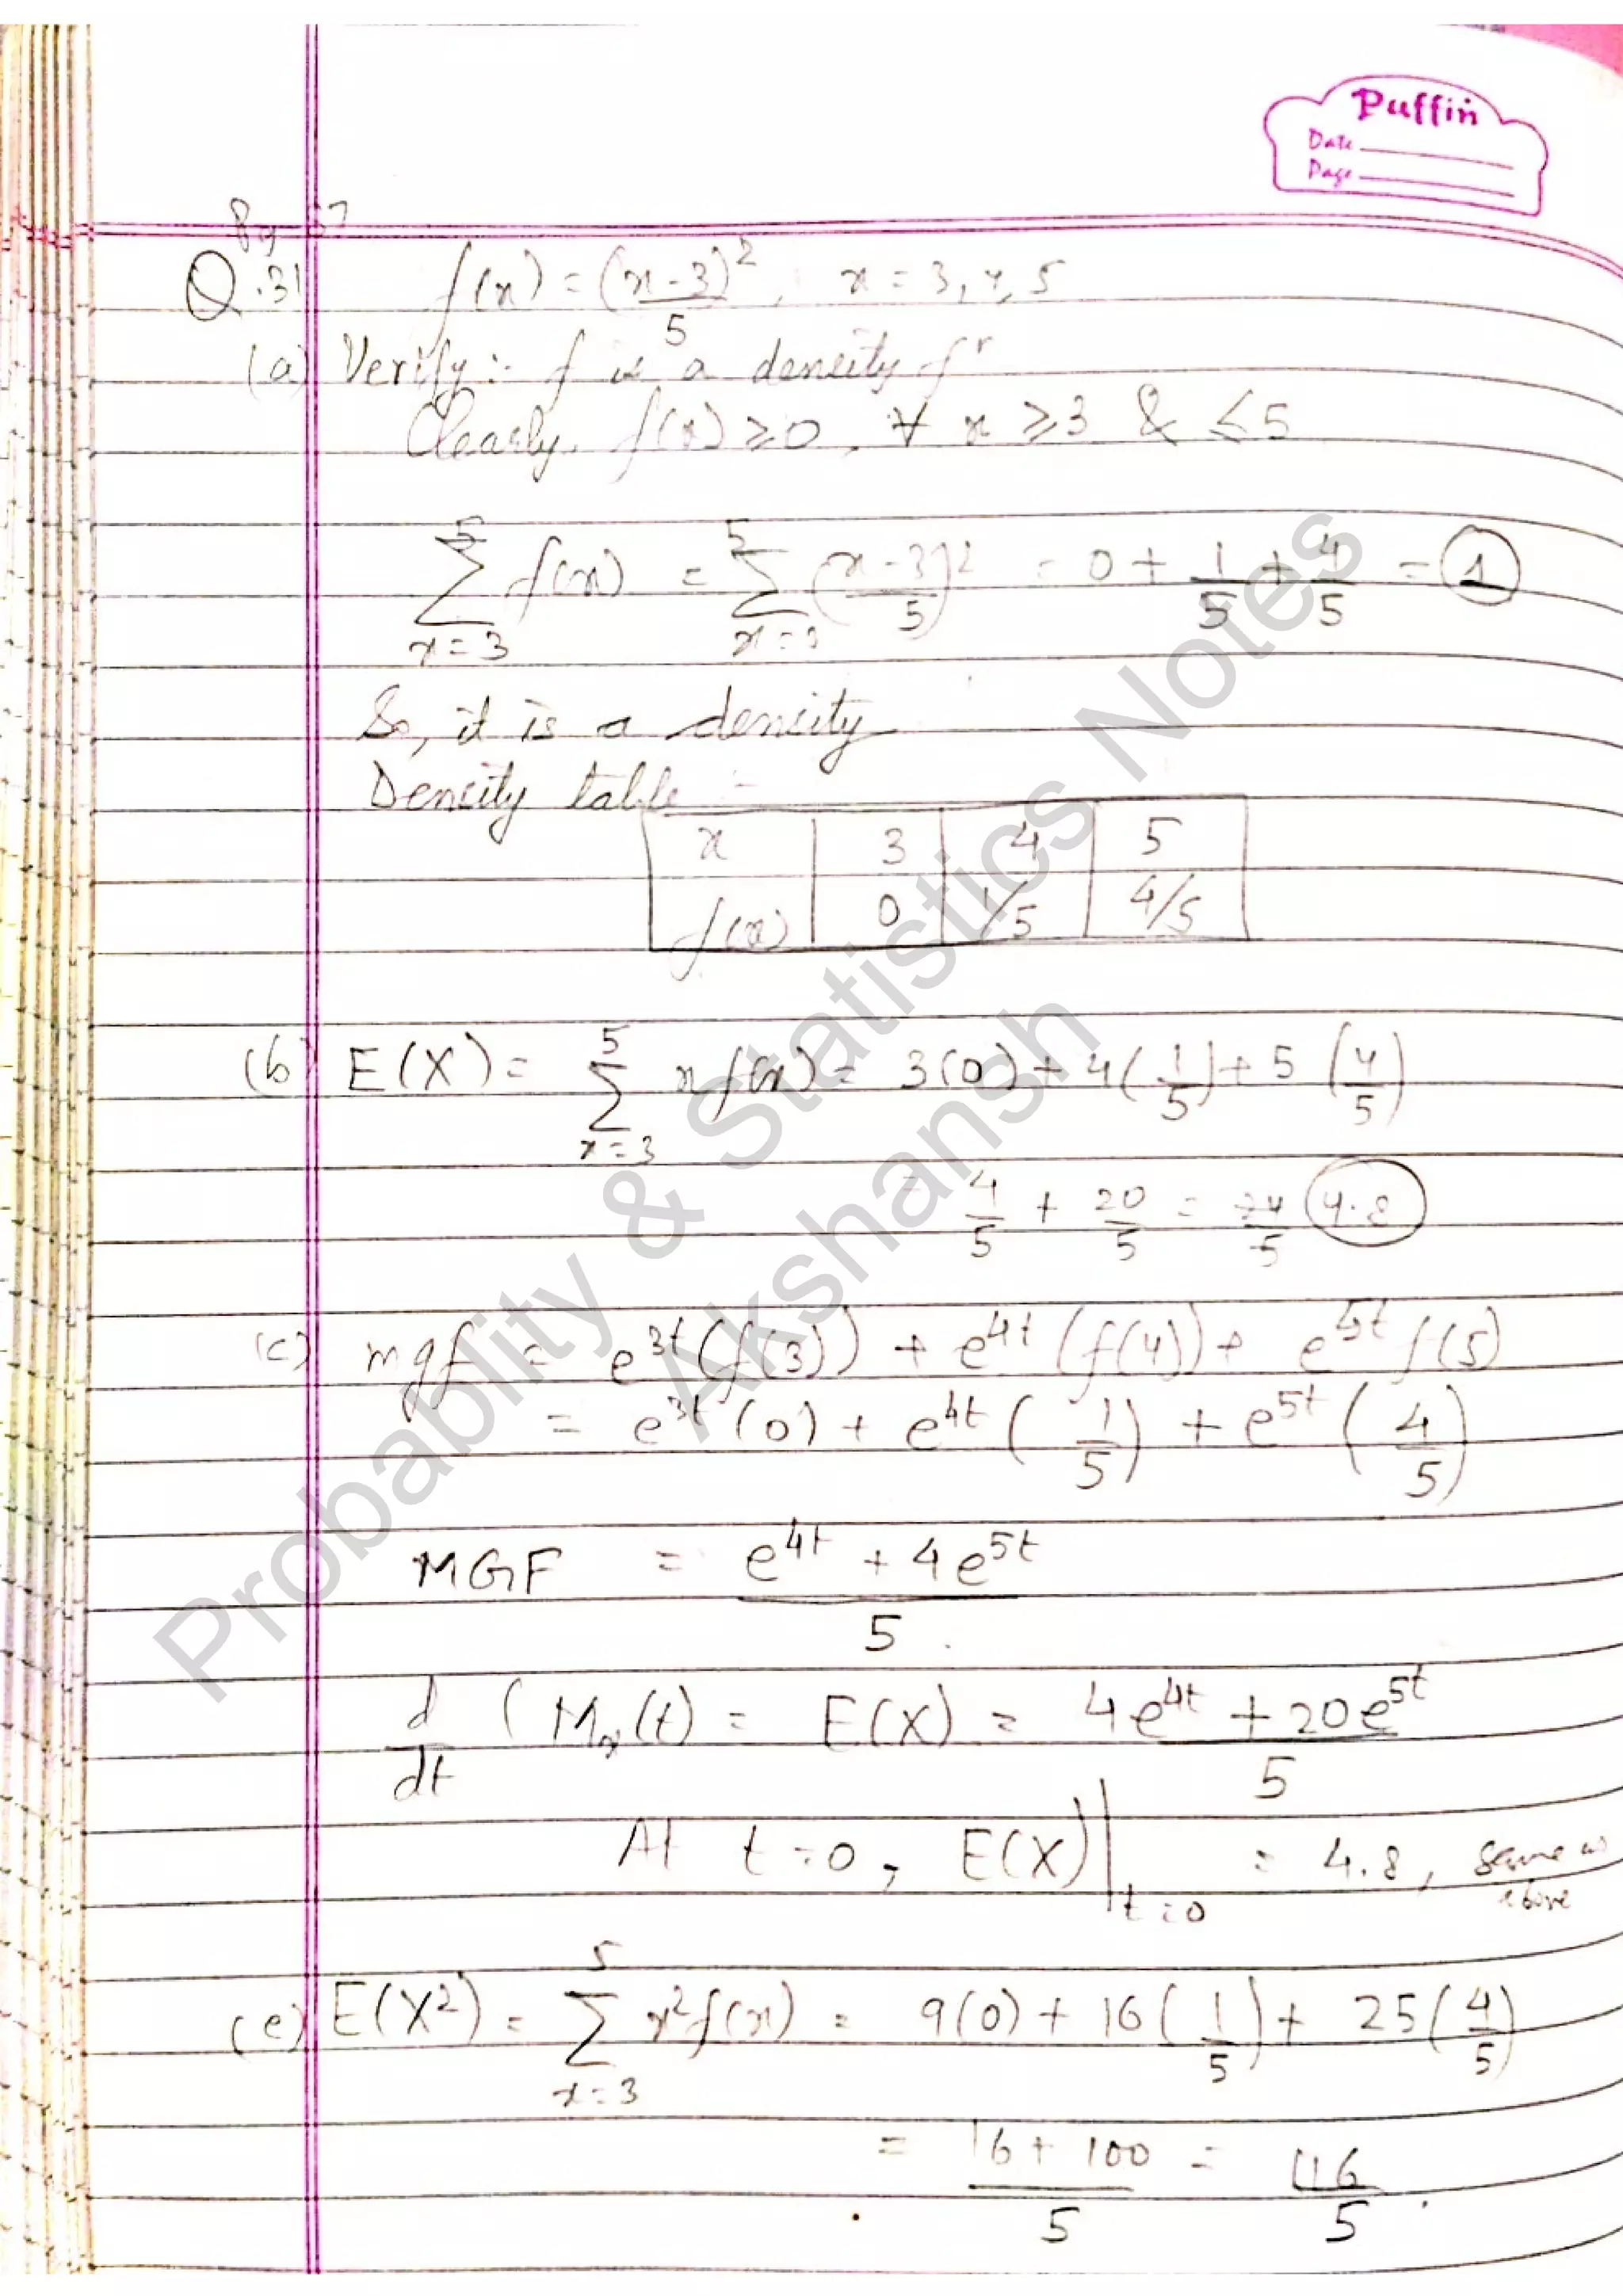 Puffin
Date
Page
Pg 57
Q.31 f(x) = (x-3)²/5, x = 3, 4, 5
(a) Verify :- f is a density fⁿ
Clearly, f(x) ≥ 0, ∀ x ≥ 3 & ≤ 5
∑_{x=3}^{5} f(x) = ∑_{x=3}^{5} (x-3)²/5 = 0 + 1/5 + 4/5 = 1
So, it is a density
Density table :-
x 3 4 5
f(x) 0 1/5 4/5
(b) E(X) = ∑_{x=3}^{5} x f(x) = 3(0) + 4(1/5) + 5(4/5)
= 4/5 + 20/5 = 24/5 4.8
(c) mgf = e^{3t}(f(3)) + e^{4t}(f(4)) + e^{5t} f(5)
= e^{3t}(0) + e^{4t}(1/5) + e^{5t}(4/5)
MGF = (e^{4t} + 4e^{5t})/5
d/dt (Mₓ(t) = E(X) = (4e^{4t} + 20e^{5t})/5
At t=0, E(X)|_{t=0} = 4.8, same as above
(e) E(X²) = ∑_{x=3}^{5} x² f(x) = 9(0) + 16(1/5) + 25(4/5)
= (16 + 100)/5 = 116/5.
Probablity & Statistics Notes
Akshansh